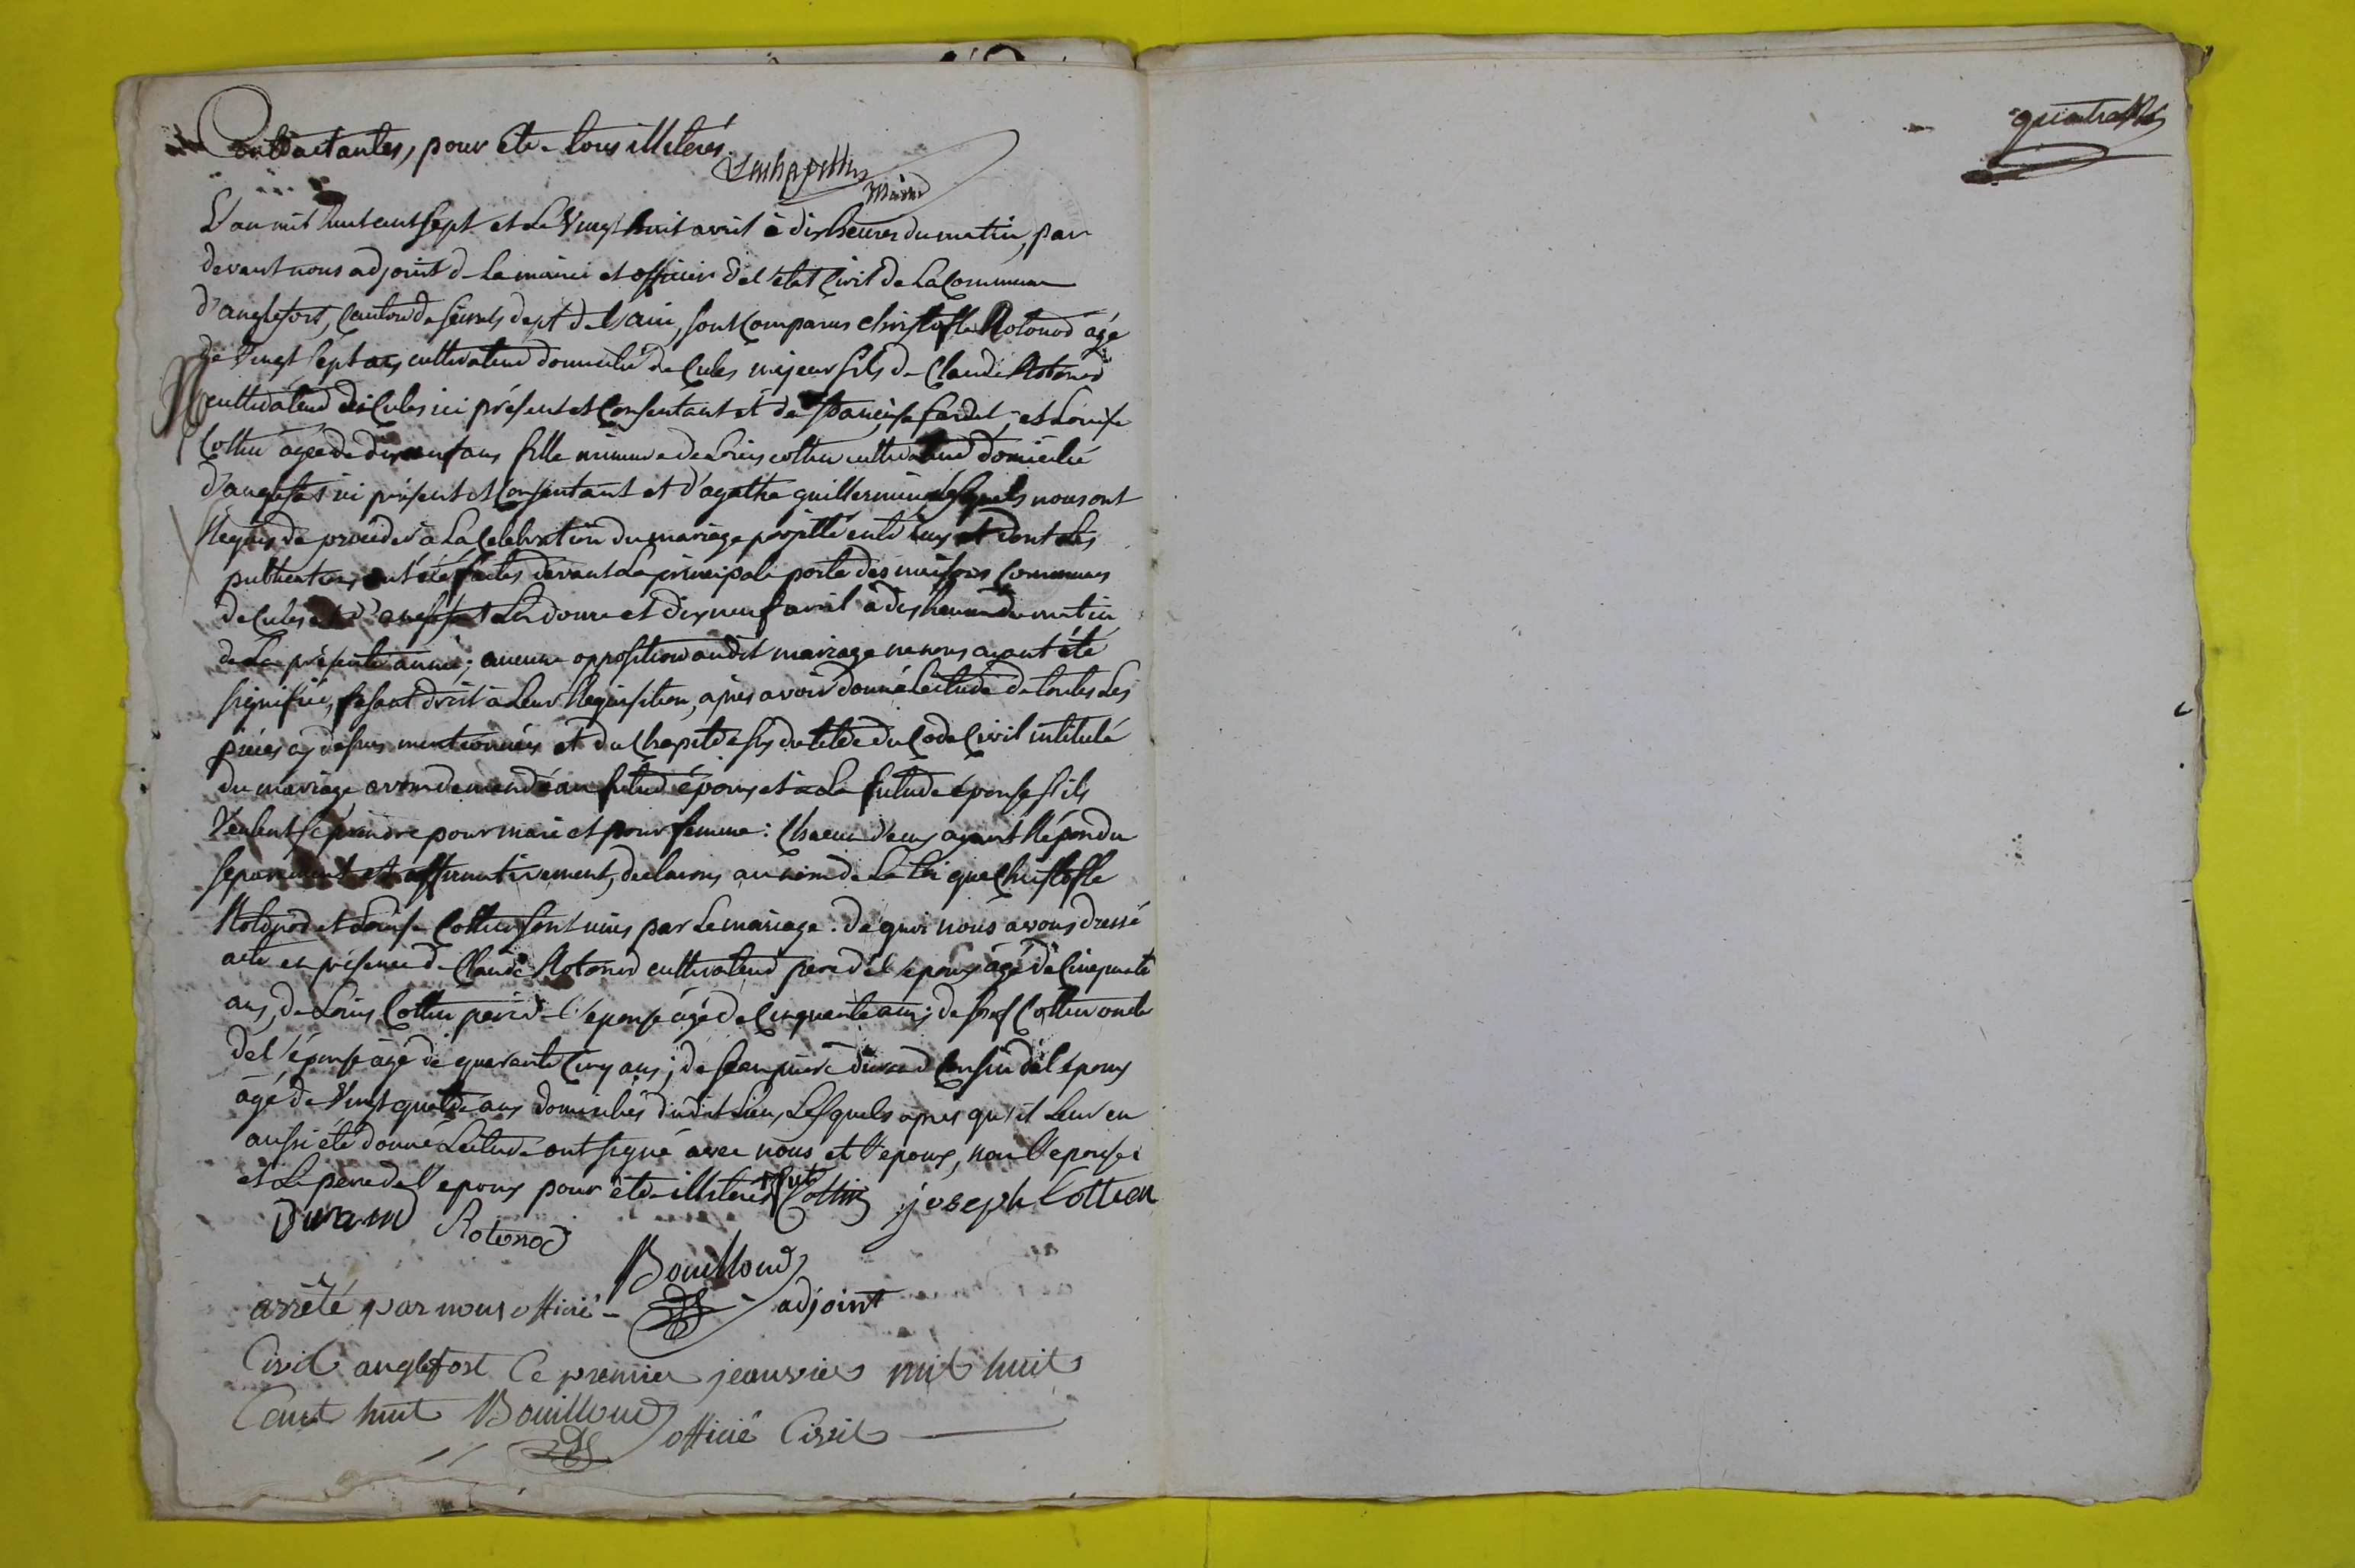 Contractantes, pour être tous illiterés.
Lachapelle
Maire
L'an mil huit cent sept et le Vingt huit avril à dix heures du matin, par
devant nous adjoint de la mairie et officier de l'état Civil de La Commune
d'anglefort, Canton de seissel dept de l'ain, sont Comparus christofle Rotonod âgé
de Vingt Sept ans cultivateur domicilié de Culos majeur fils de Claude Rotonod
cultivateur de Culos ici présent et Consentant et de fardel, et Louise
Cottin agée de dix neuf ans fille mineure de Louis cottin cultivateur domicilié
d'anglefort ici présent et Consentant et d'agathe guillermin, Lesquels nous ont
Requis de procéder à La Celebration du mariage projetté entr'eux et dont Les
publications ont été faites devant La principale porte des maisons Communes
de Culos et d'anglefort Les douze et dix neuf avril à dix heures du matin
de La présente année; aucune opposition audit mariage ne nous ayant été
signifiée, fesant droit à Leur Requisition, après avoir donné Lecture de toutes Les
pièces cy dessus mentionnées et du Chapitre six du titre du Code Civil intitulé
du mariage, avons demandé au futur époux et à La future épouse s'ils
Veulent se prendre pour mari et pour femme: Chacun d'eux ayant Répondu
séparement et affirmativement, declarons au nom de La Loi que Christofle
Rotonod et Louise Cottin sont unis par Le mariage: de quoi nous avons dressé
acte en présence de Claude Rotonod cultivateur pere de l'époux agé de Cinquante
ans, de Louis Cottin père de l'épouse âgé de Cinquante ans; de Cottin oncle
de l'épouse âgé de quarante Cinq ans; de Jean pierre durand Cousin de l'époux
âgé de Vingt quatre ans domiciliés dudit Lieu, Lesquels après qu'il Leur en
aussi été donné Lecture ont signé avec nous et l'époux, non l'épouse
et Le pere de l'epoux pour être illiterés Cottin joseph Cottien
Durand Rotonod
Bouilloud
adjoint
arrêté par nous officié
Civil anglefort Ce premier jeanvier mil huit
Cent huit Bouilloud officié Civil
quatre